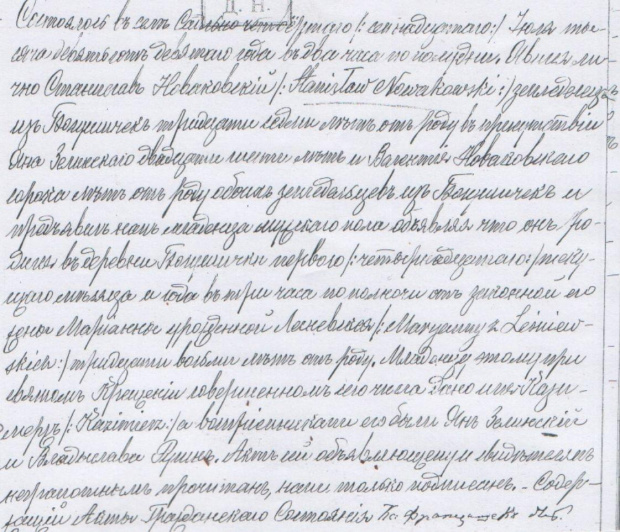 Д. Н.
Состоялось въ селѣ четвертаго /: семнадцатаго:/ Іюля ты-
сяча девятьсотъ десятаго года въ два часа по полудни. Явился ли-
чно Станиславъ Новаковскій /: Stanisław Nowakowski :/ земледѣлецъ
изъ тридцати седми лѣтъ отъ роду въ присутствіи
Яна Зелинскаго двадцати шести лѣтъ и Валентія Новаковскаго
сорока лѣтъ отъ роду обоихъ земледѣльцевъ изъ и
предъявилъ намъ младенца мужскаго пола объявляя что онъ ро-
дился въ деревни перваго /: четырнадцатаго:/ теку-
щаго мѣсяца и года въ три часа по полночи отъ законной его
жены Маріанны урожденной Лесневской /: Maryanny z Leśniew-
skich :/ тридцати восьми лѣтъ отъ роду. Младенцу этому при
святомъ Крещеніи совершенномъ сего числа дано имя Кази-
меръ /: Kazimierz :/ а воспріемниками его были Янъ Зелинскій
и Владыслава Актъ сей объявляющему и свидѣтелямъ
неграмотнымъ прочитанъ, нами только подписанъ. – Содер-
жащій Акты Гражданскаго Состоянія Кс.